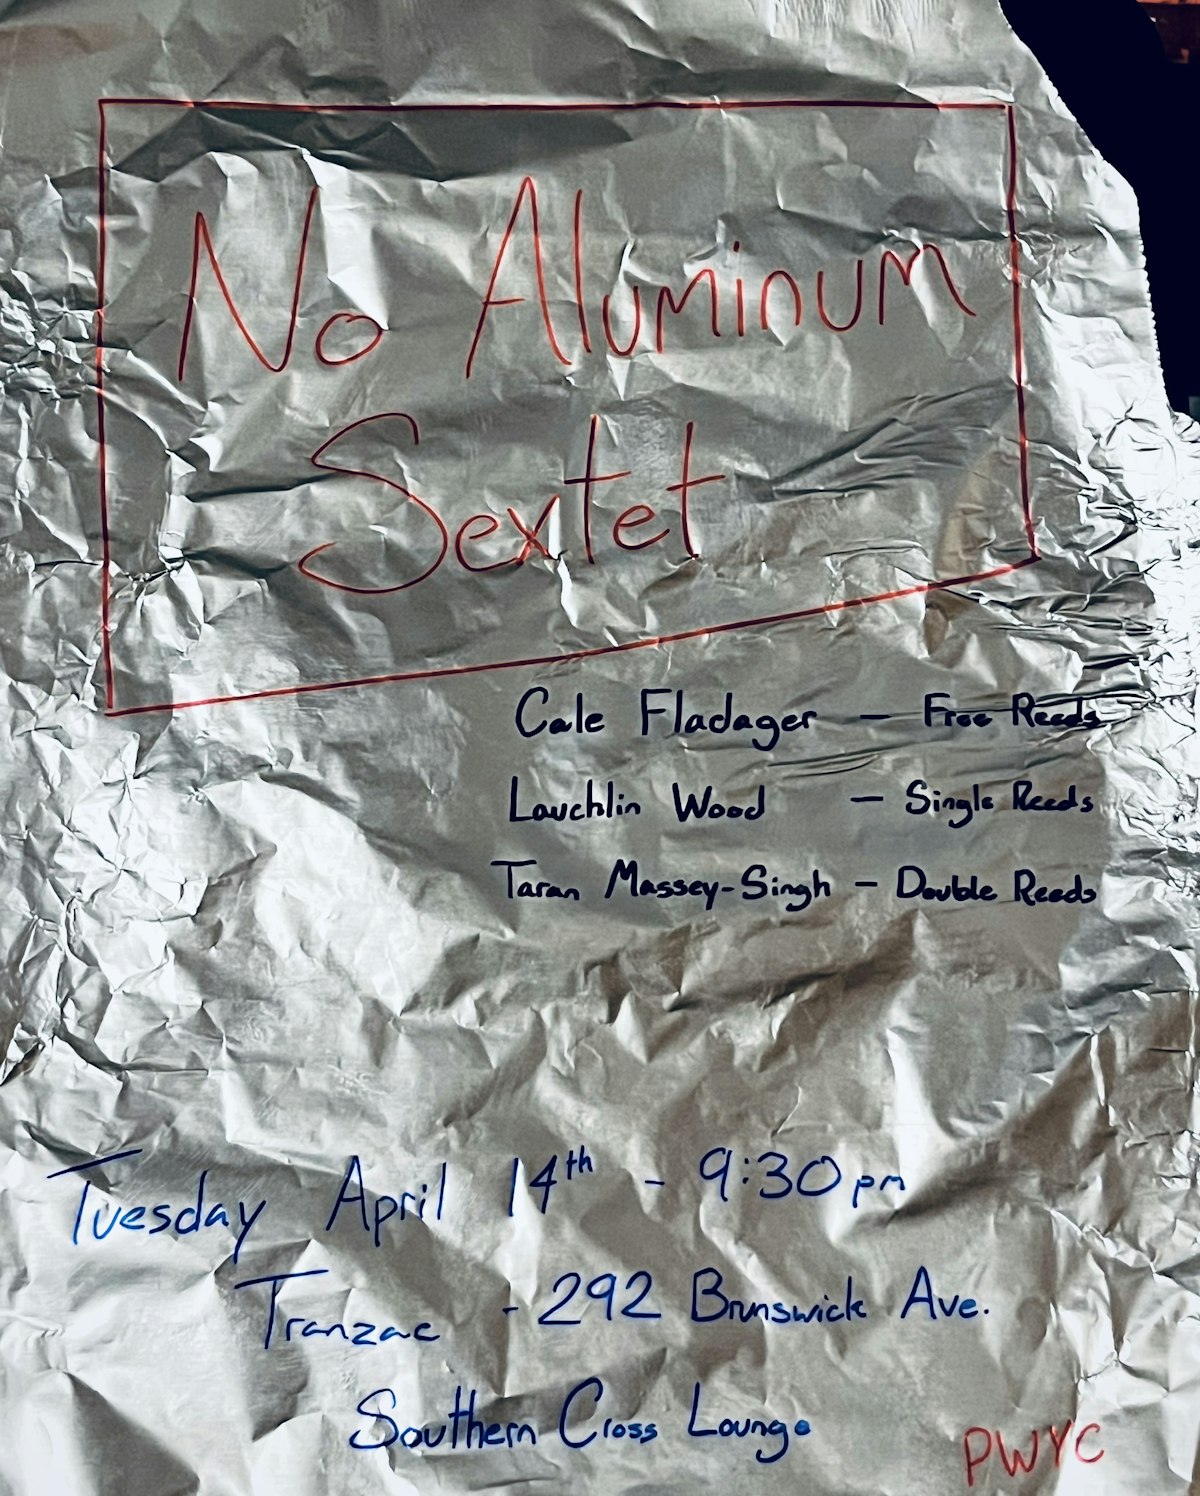 No Aluminum
Sextet
Cale Fladager - Free Reeds
Lauchlin Wood - Single Reeds
Taran Massey-Singh - Double Reeds
Tuesday April 14th - 9:30pm
Tranzac - 292 Brunswick Ave.
Southern Cross Lounge
PWYC